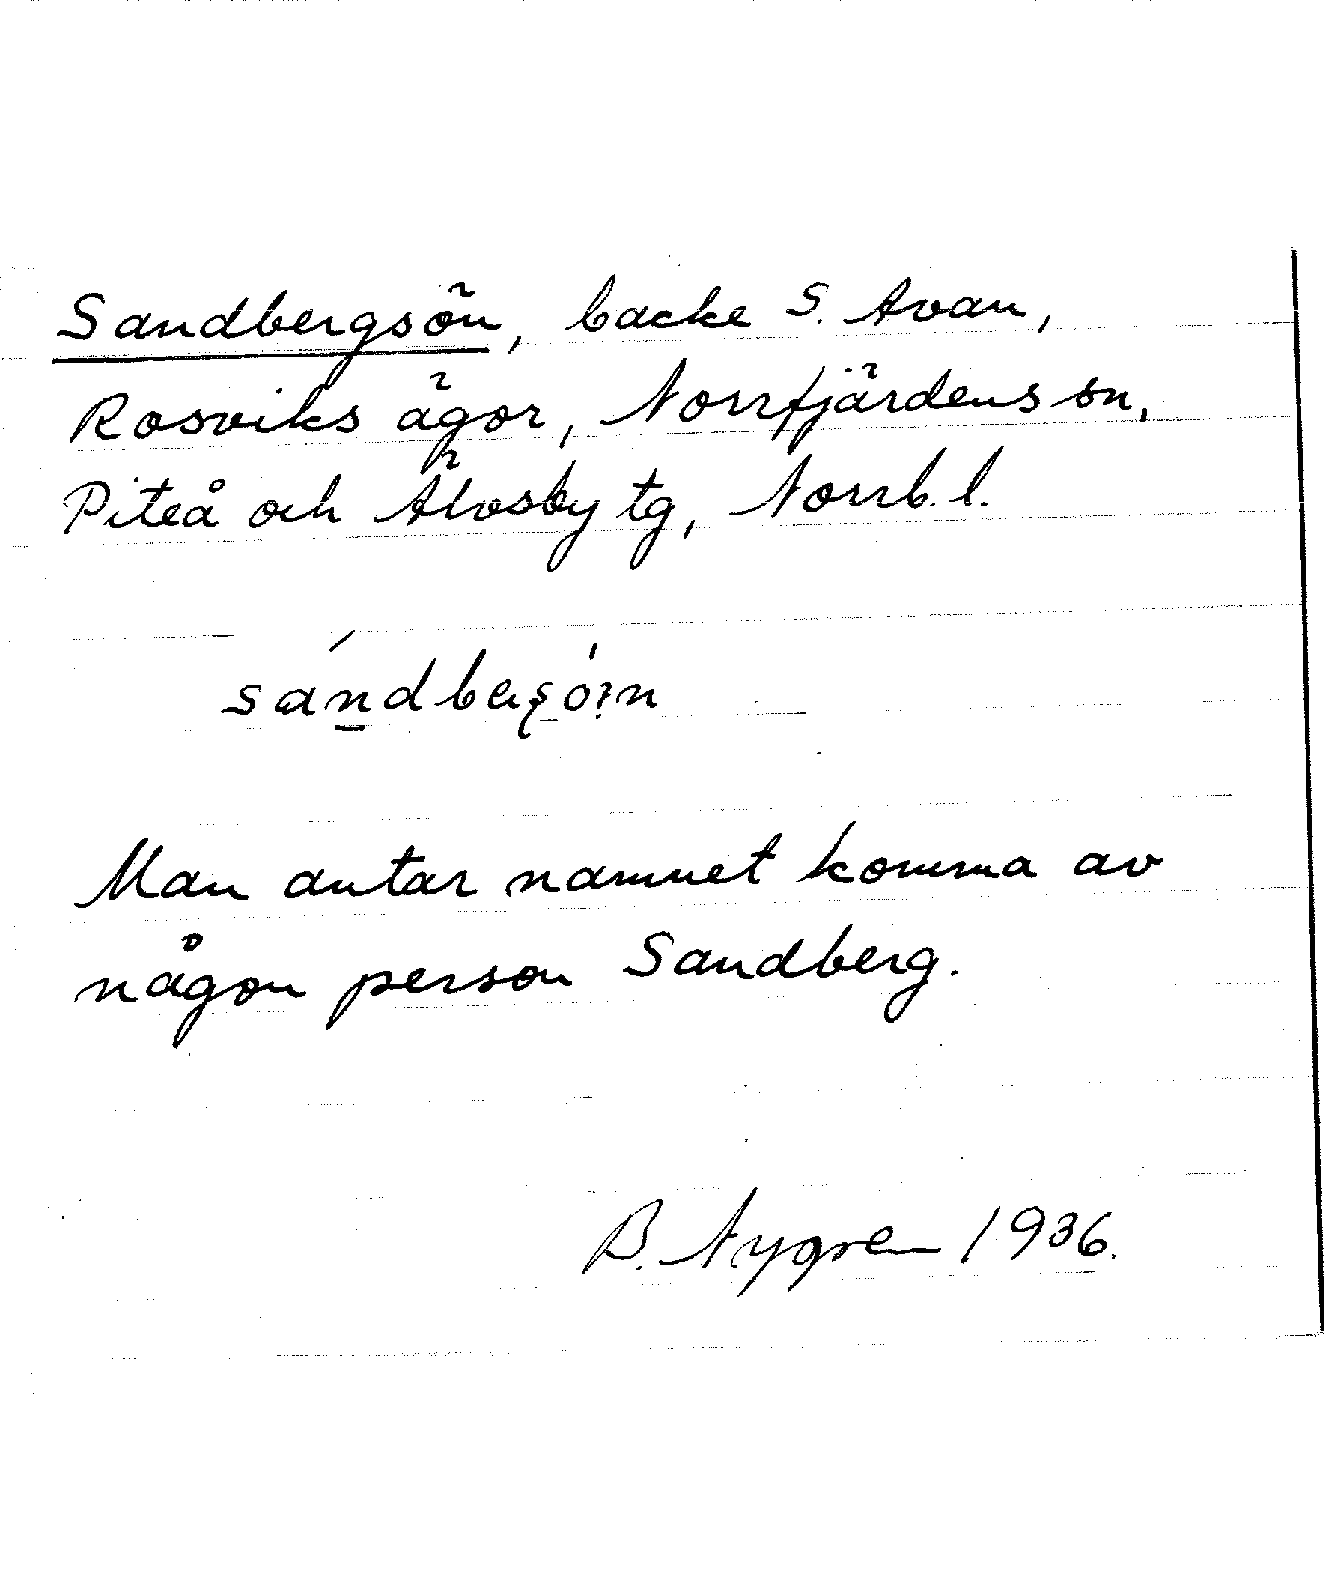 Sandbergsön, backe S. Avan,
Rosviks ägor, Norrfjärdens sn,
Piteå och Älvsby tg, Norrb. l.
Man antar namnet komma av
någon person Sandberg.
B. Nygren 1936.